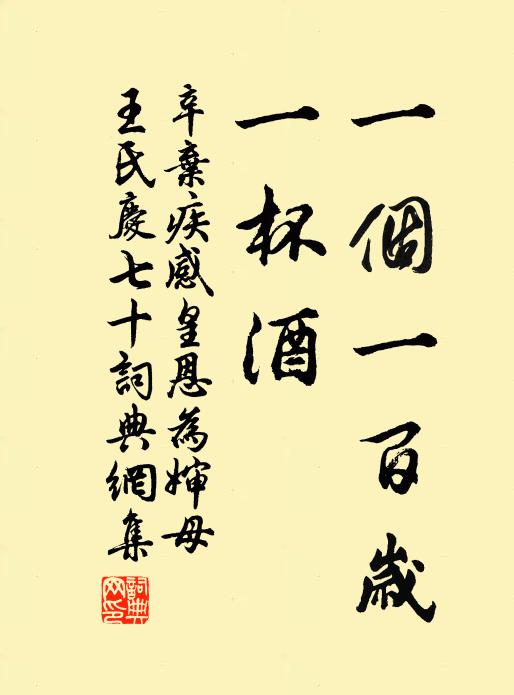 一個一百歲
一杯酒
辛棄疾感皇恩為嬸母
王氏慶七十詞典網集
詞典網印